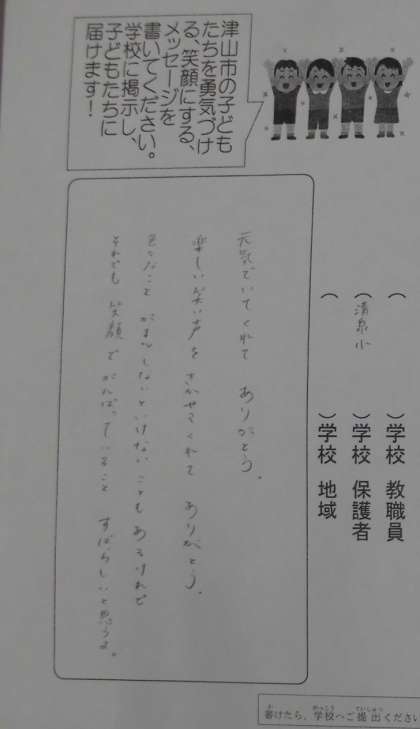 津山市の子ども
たちを勇気づけ
る、笑顔にする、
メッセージを
書いてください。
学校に掲示し、
子どもたちに
届けます！
（　　　）学校 教職員
（清泉小）学校 保護者
（　　　）学校 地域
元気でいてくれて ありがとう。
楽しい笑い声を きかせてくれて ありがとう。
色々なこと がまんしないといけない ことも あるけれど
それでも 笑顔で がんばっていること すばらしいと思うよ。
書けたら、学校へご提出ください